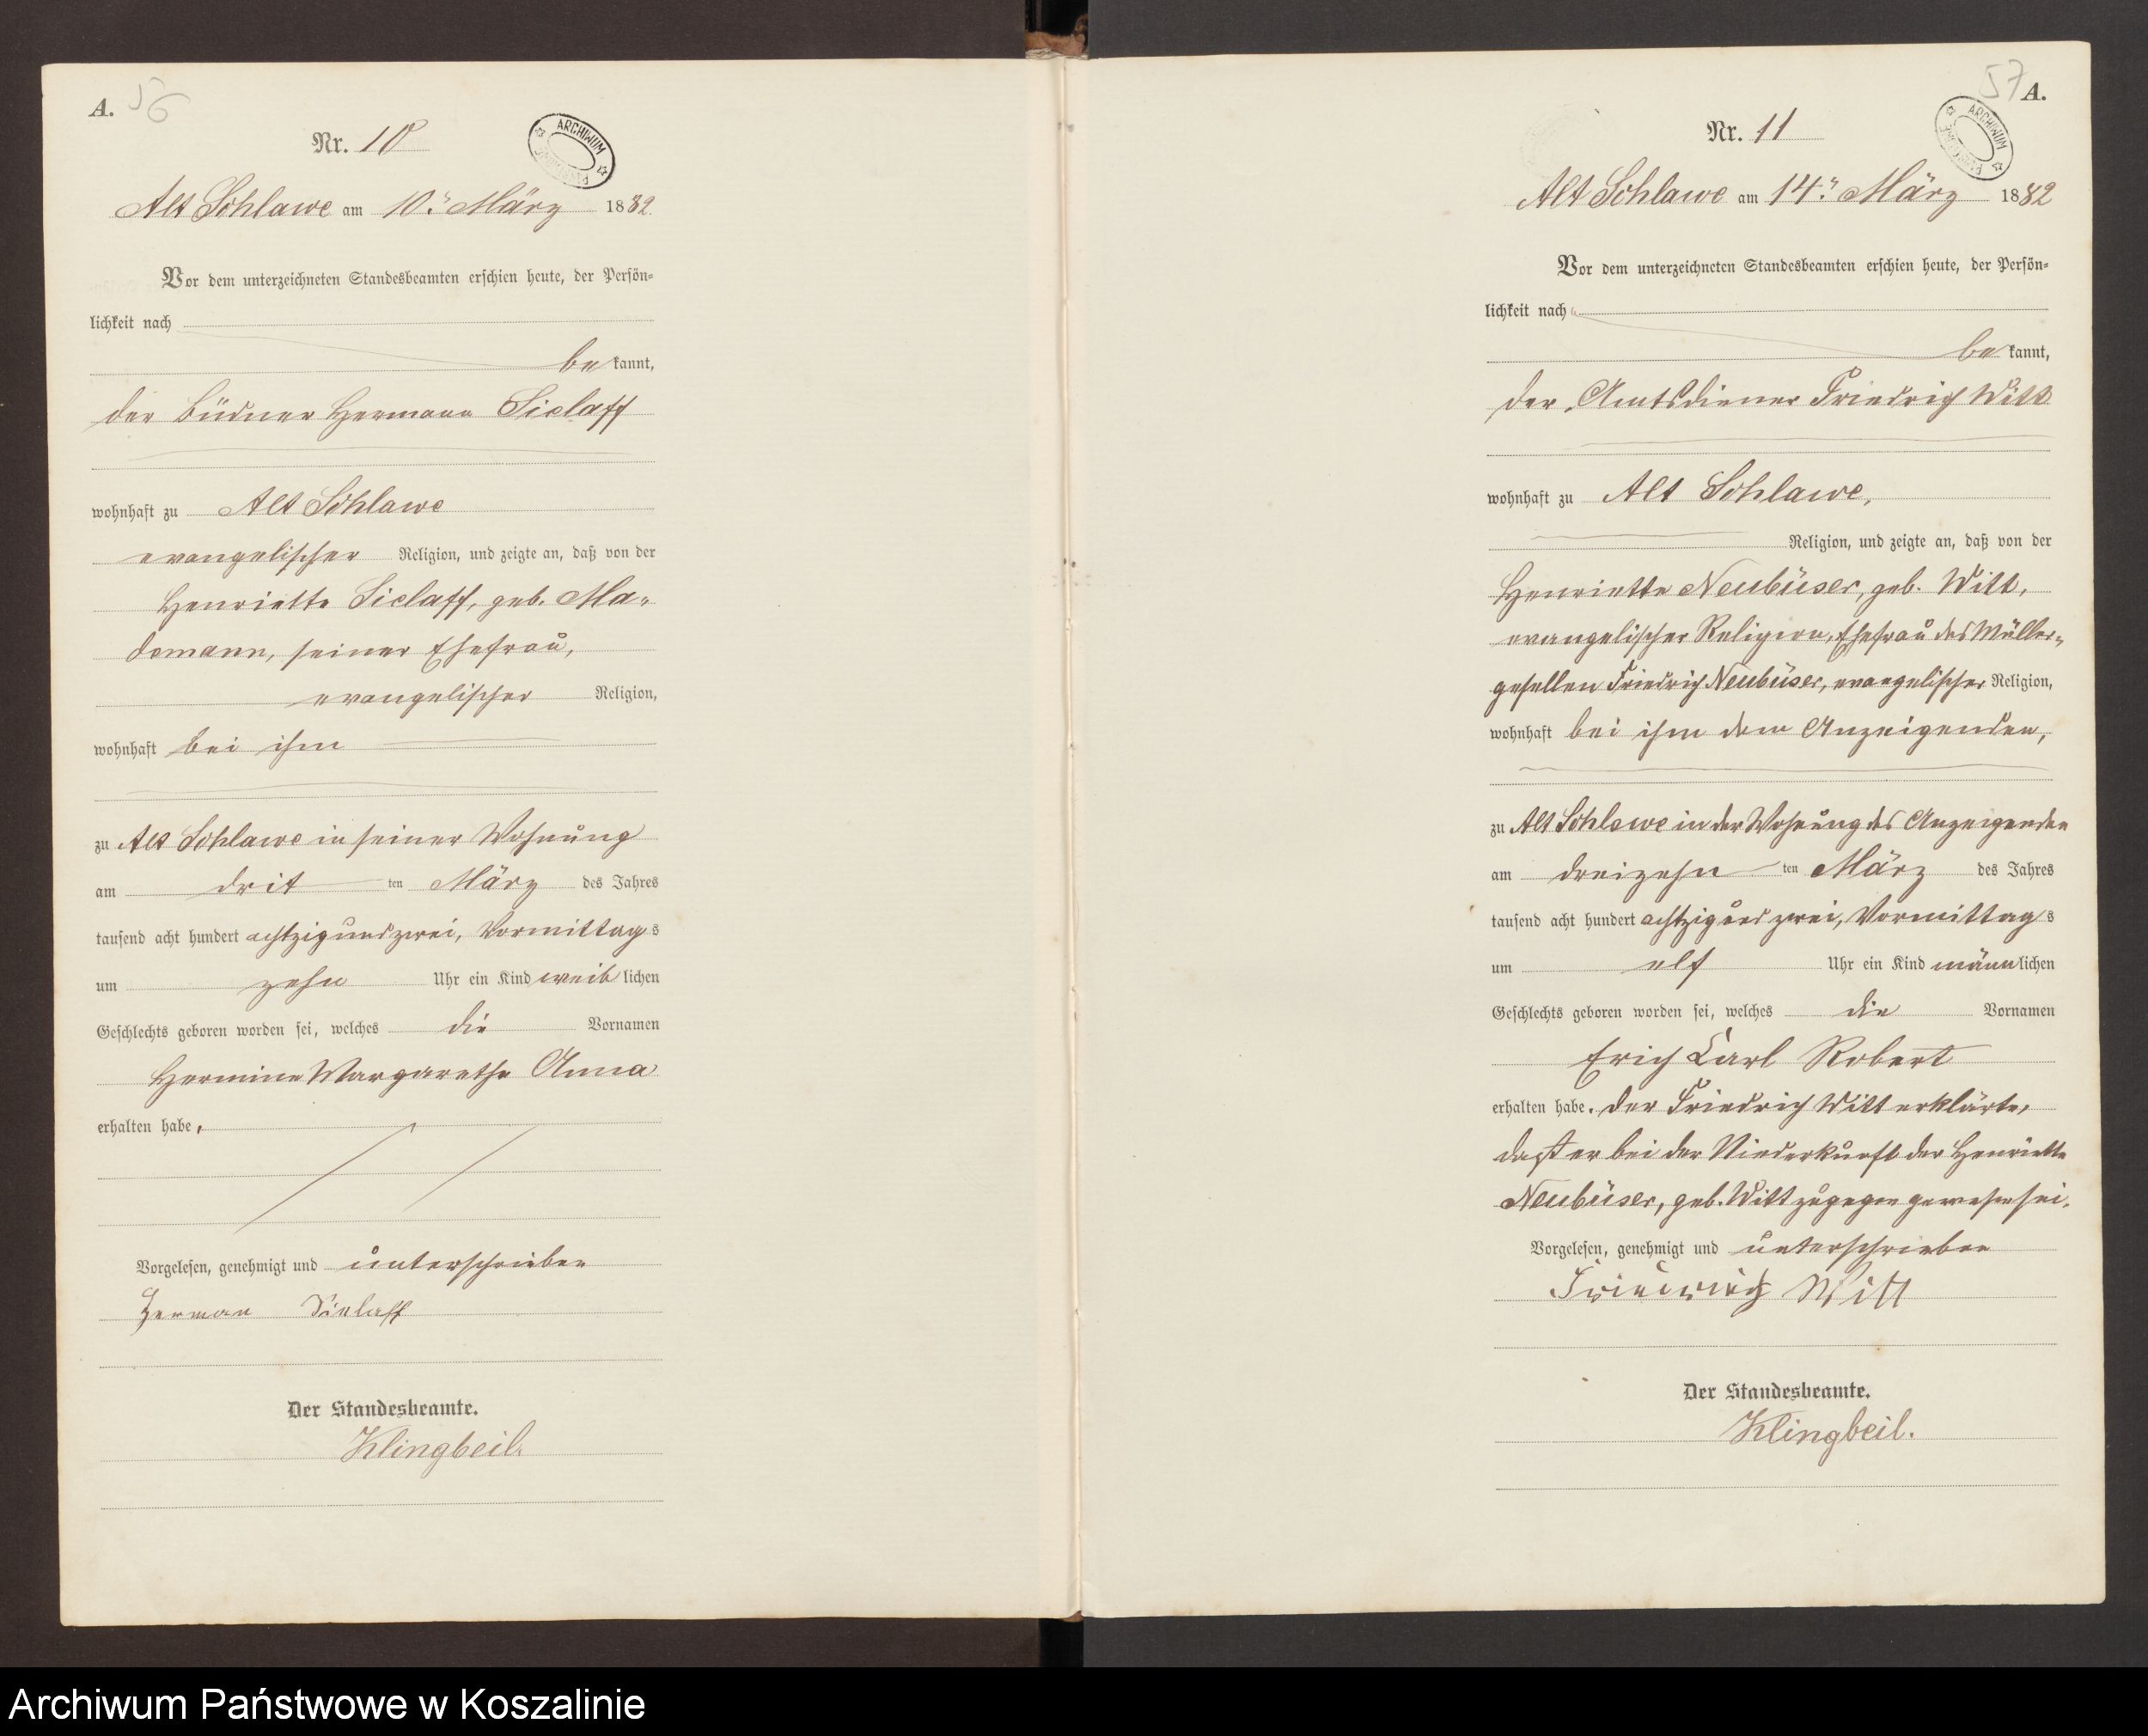 A. 56
Nr. 10
ARCHIWUM
Alt Schlawe am 10. März 1882
Vor dem unterzeichneten Standesbeamten erschien heute, der Persön=
lichkeit nach
be kannt,
der Büdner Hermann Sielaff
wohnhaft zu Alt Schlawe
evangelischer Religion, und zeigte an, daß von der
Henriette Sielaff, geb. Ma-
domann, seiner Ehefrau,
evangelischer Religion,
wohnhaft bei ihm
zu Alt Schlawe in seiner Wohnung
am drit ten März des Jahres
tausend acht hundert achtzig und zwei, Vormittag s
um zehn Uhr ein Kind weib lichen
Geschlechts geboren worden sei, welches die Vornamen
Hermine Margarethe Anna
erhalten habe.
Vorgelesen, genehmigt und unterschrieben
Herman Sielaff
Der Standesbeamte.
Klingbeil.
57 A.
Nr. 11
ARCHIWUM
Alt Schlawe am 14. März 1882
Vor dem unterzeichneten Standesbeamten erschien heute, der Persön=
lichkeit nach
be kannt,
der Amtsdiener Friedrich Witt
wohnhaft zu Alt Schlawe,
Religion, und zeigte an, daß von der
Henriette Neubüser, geb. Witt,
evangelischer Religion, Ehefrau des Müller-
gesellen Friedrich Neubüser, evangelischer Religion,
wohnhaft bei ihm dem Anzeigenden,
zu Alt Schlawe in der Wohnung des Anzeigenden
am dreizehn ten März des Jahres
tausend acht hundert achtzig und zwei, Vormittag s
um elf Uhr ein Kind männ lichen
Geschlechts geboren worden sei, welches die Vornamen
Erich Carl Robert
erhalten habe. Der Friedrich Witt erklärte,
daß er bei der Niederkunft der Henriette
Neubüser, geb. Witt zugegen gewesen sei.
Vorgelesen, genehmigt und unterschrieben
Friedrich Witt
Der Standesbeamte.
Klingbeil.
Archiwum Państwowe w Koszalinie